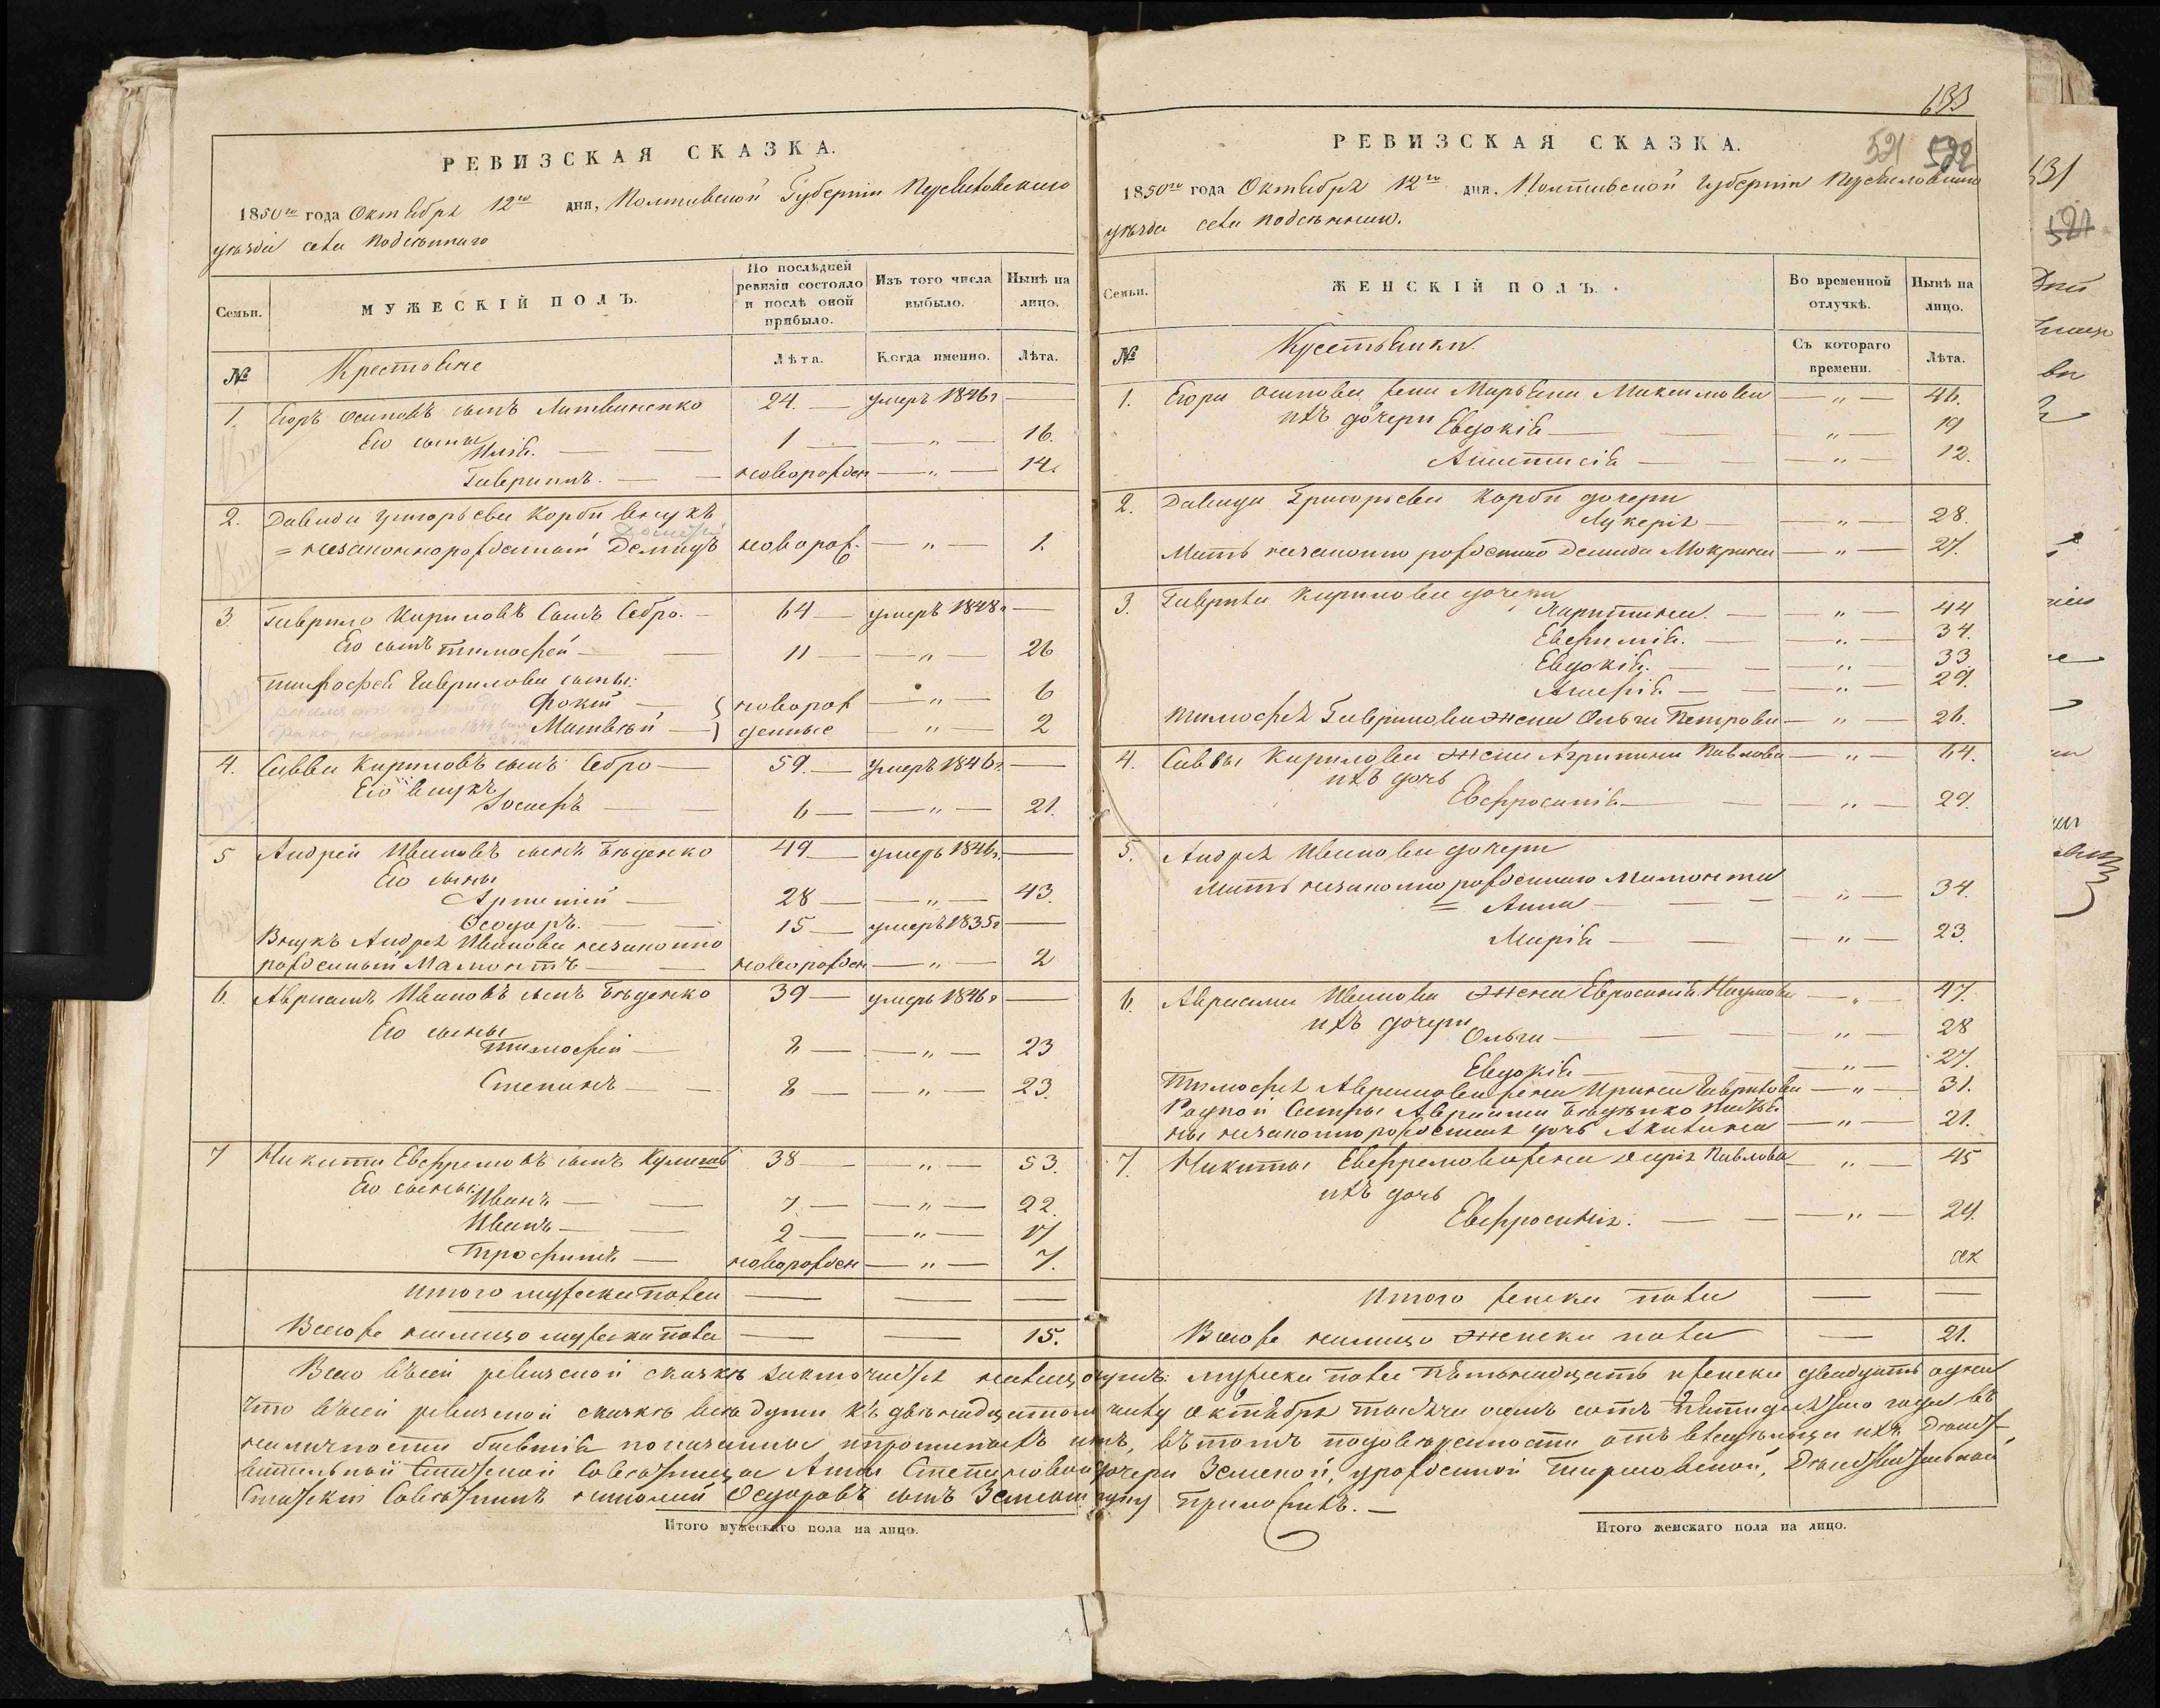 РЕВИЗСКАЯ СКАЗКА.
1850го года Октября 12го дня, Полтавской Губернiи
уѣзда села
Семьи.
МУЖЕСКIЙ ПОЛЪ.
По послѣдней ревизiи состояло и послѣ оной прибыло.
Изъ того числа выбыло.
Нынѣ на лицо.
№
Крестьяне
Лѣта.
Когда именно.
Лѣта.
1. Егоръ Осиповъ сынъ Литвиненко 24. — умеръ 1846г —
Его сыны
Илiя. — — 1 — — „ — 16.
Гаврiилъ. — — новорожден — „ — 14.
2. Давида Григорьева Корби внукъ
= незаконнорожденный Демидъ новорож. — „ — 1.
3. Гаврило Кириловъ сынъ Себро. — 64 — умеръ 1848г —
Его сынъ Тимофей — — 11 — — „ — 26
Тимофея Гаврилова сыны:
Фокiй — новорож — „ — 6
Матвѣй — денные — „ — 2
4. Савва Кириловъ сынъ Себро — 59. — умеръ 1846г. —
Его внукъ
Iосифъ — — 6 — — „ — 21.
5 Андрей Ивановъ сынъ Бѣденко 49. — умеръ 1846г. —
Его сыны
28 — — „ — 43.
Ѳеодоръ. — — 15 — умеръ 1835г —
Внукъ Андрея Иванова незаконно
рожденный Мамонтъ — — новорожден — „ — 2
6. Авраамъ Ивановъ сынъ Бѣденко 39 — умеръ 1846г —
Его сыны
Тимофей — 8 — — „ — 23
Степанъ — — 8 — — „ — 23.
7 Никита Евфремовъ сынъ 38 — — „ — 53.
Его сыны:
Иванъ — — 7 — — „ — 22.
Иванъ — — 2 — — „ — 17
Трофимъ — новорожден — „ — 7.
Итого мужеска пола — — —
Всего же налицо мужеска пола — — 15.
Итого мужескаго пола на лицо.
633
521 522
РЕВИЗСКАЯ СКАЗКА.
1850го года Октября 12го дня, Полтавской Губернiи
уѣзда села
Семьи.
ЖЕНСКIЙ ПОЛЪ.
Во временной отлучкѣ.
Нынѣ на лицо.
№
Крестьянки
Съ котораго времени.
Лѣта.
1. Егора Осипова жена Марьяна Максимова — „ — 46.
ихъ дочери Евдокiя — — „ — 19
Анастасiя — — — „ — 12.
2. Давида Григорьева Корби дочери
Лукерiя — — „ — 28.
Мать незаконно рожденнаго Демида Мокрина — „ — 27.
3. Гаврила Кирилова дочери
Харитина. — — „ — 44
Евфимiя. — — „ — 34.
Евдокiя. — — „ — 33
— — „ — 29.
Тимофея Гаврилова жена Ольга Петрова — „ — 26.
4. Саввы Кирилова жена Агрипина Павлова — „ — 64.
ихъ дочь
Евфросинiя — — „ — 29.
5. Андрея Иванова дочери
Мать незаконно рожденнаго Мамонта
= Анна — — — „ — 34.
Марiя — — — „ — 23.
6. Авраама Иванова жена Евросинiя Наумова — „ — 47.
ихъ дочери
Ольга — — — „ — 28
Евдокiя — — „ — 27.
Тимофея Аврамова жена Ирина Гаврилова — „ — 31.
Родной Сестры Авраама Бѣденко
незаконнорожденная дочь Акилина — „ — 21.
7. Никиты Евфремова жена Дарiя Павлова — „ — 45
ихъ дочь
Евфросинiя. — — „ — 24.
Итого женска пола — —
Всего же налицо женска пола — 21.
Всего въ сей ревизской сказкѣ налицо душъ: мужеска пола пятьнадцать и женска двадцать одна
Что въ сей ревизской сказкѣ всѣ души къ двѣнадцатому числу Октября тысяча осемъ сотъ пятидесятаго года въ
наличности бывшiя показанны, и пропилныхъ нѣтъ, въ томъ по довѣренности отъ владѣлицы ихъ
Статской Совѣтницы Анны Степановой дочери Земской, урожденной
Статскiй Совѣтникъ Ѳедоровъ сынъ руку приложилъ. —
Итого женскаго пола на лицо.